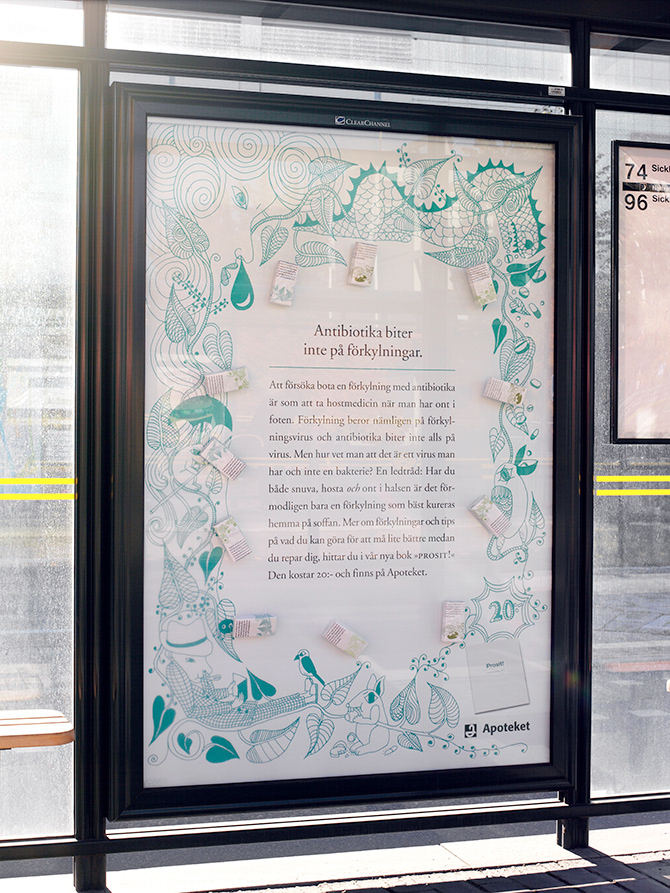 CLEARCHANNEL
74 Sickl
96 Sickl
Antibiotika biter
inte på förkylningar.
Att försöka bota en förkylning med antibiotika
är som att ta hostmedicin när man har ont i
foten. Förkylning beror nämligen på förkyl-
ningsvirus och antibiotika biter inte alls på
virus. Men hur vet man att det är ett virus man
har och inte en bakterie? En ledtråd: Har du
både snuva, hosta och ont i halsen är det för-
modligen bara en förkylning som bäst kureras
hemma på soffan. Mer om förkylningar och tips
på vad du kan göra för att må lite bättre medan
du repar dig, hittar du i vår nya bok »PROSIT!«
Den kostar 20:- och finns på Apoteket.
20:-
Prosit!
Apoteket